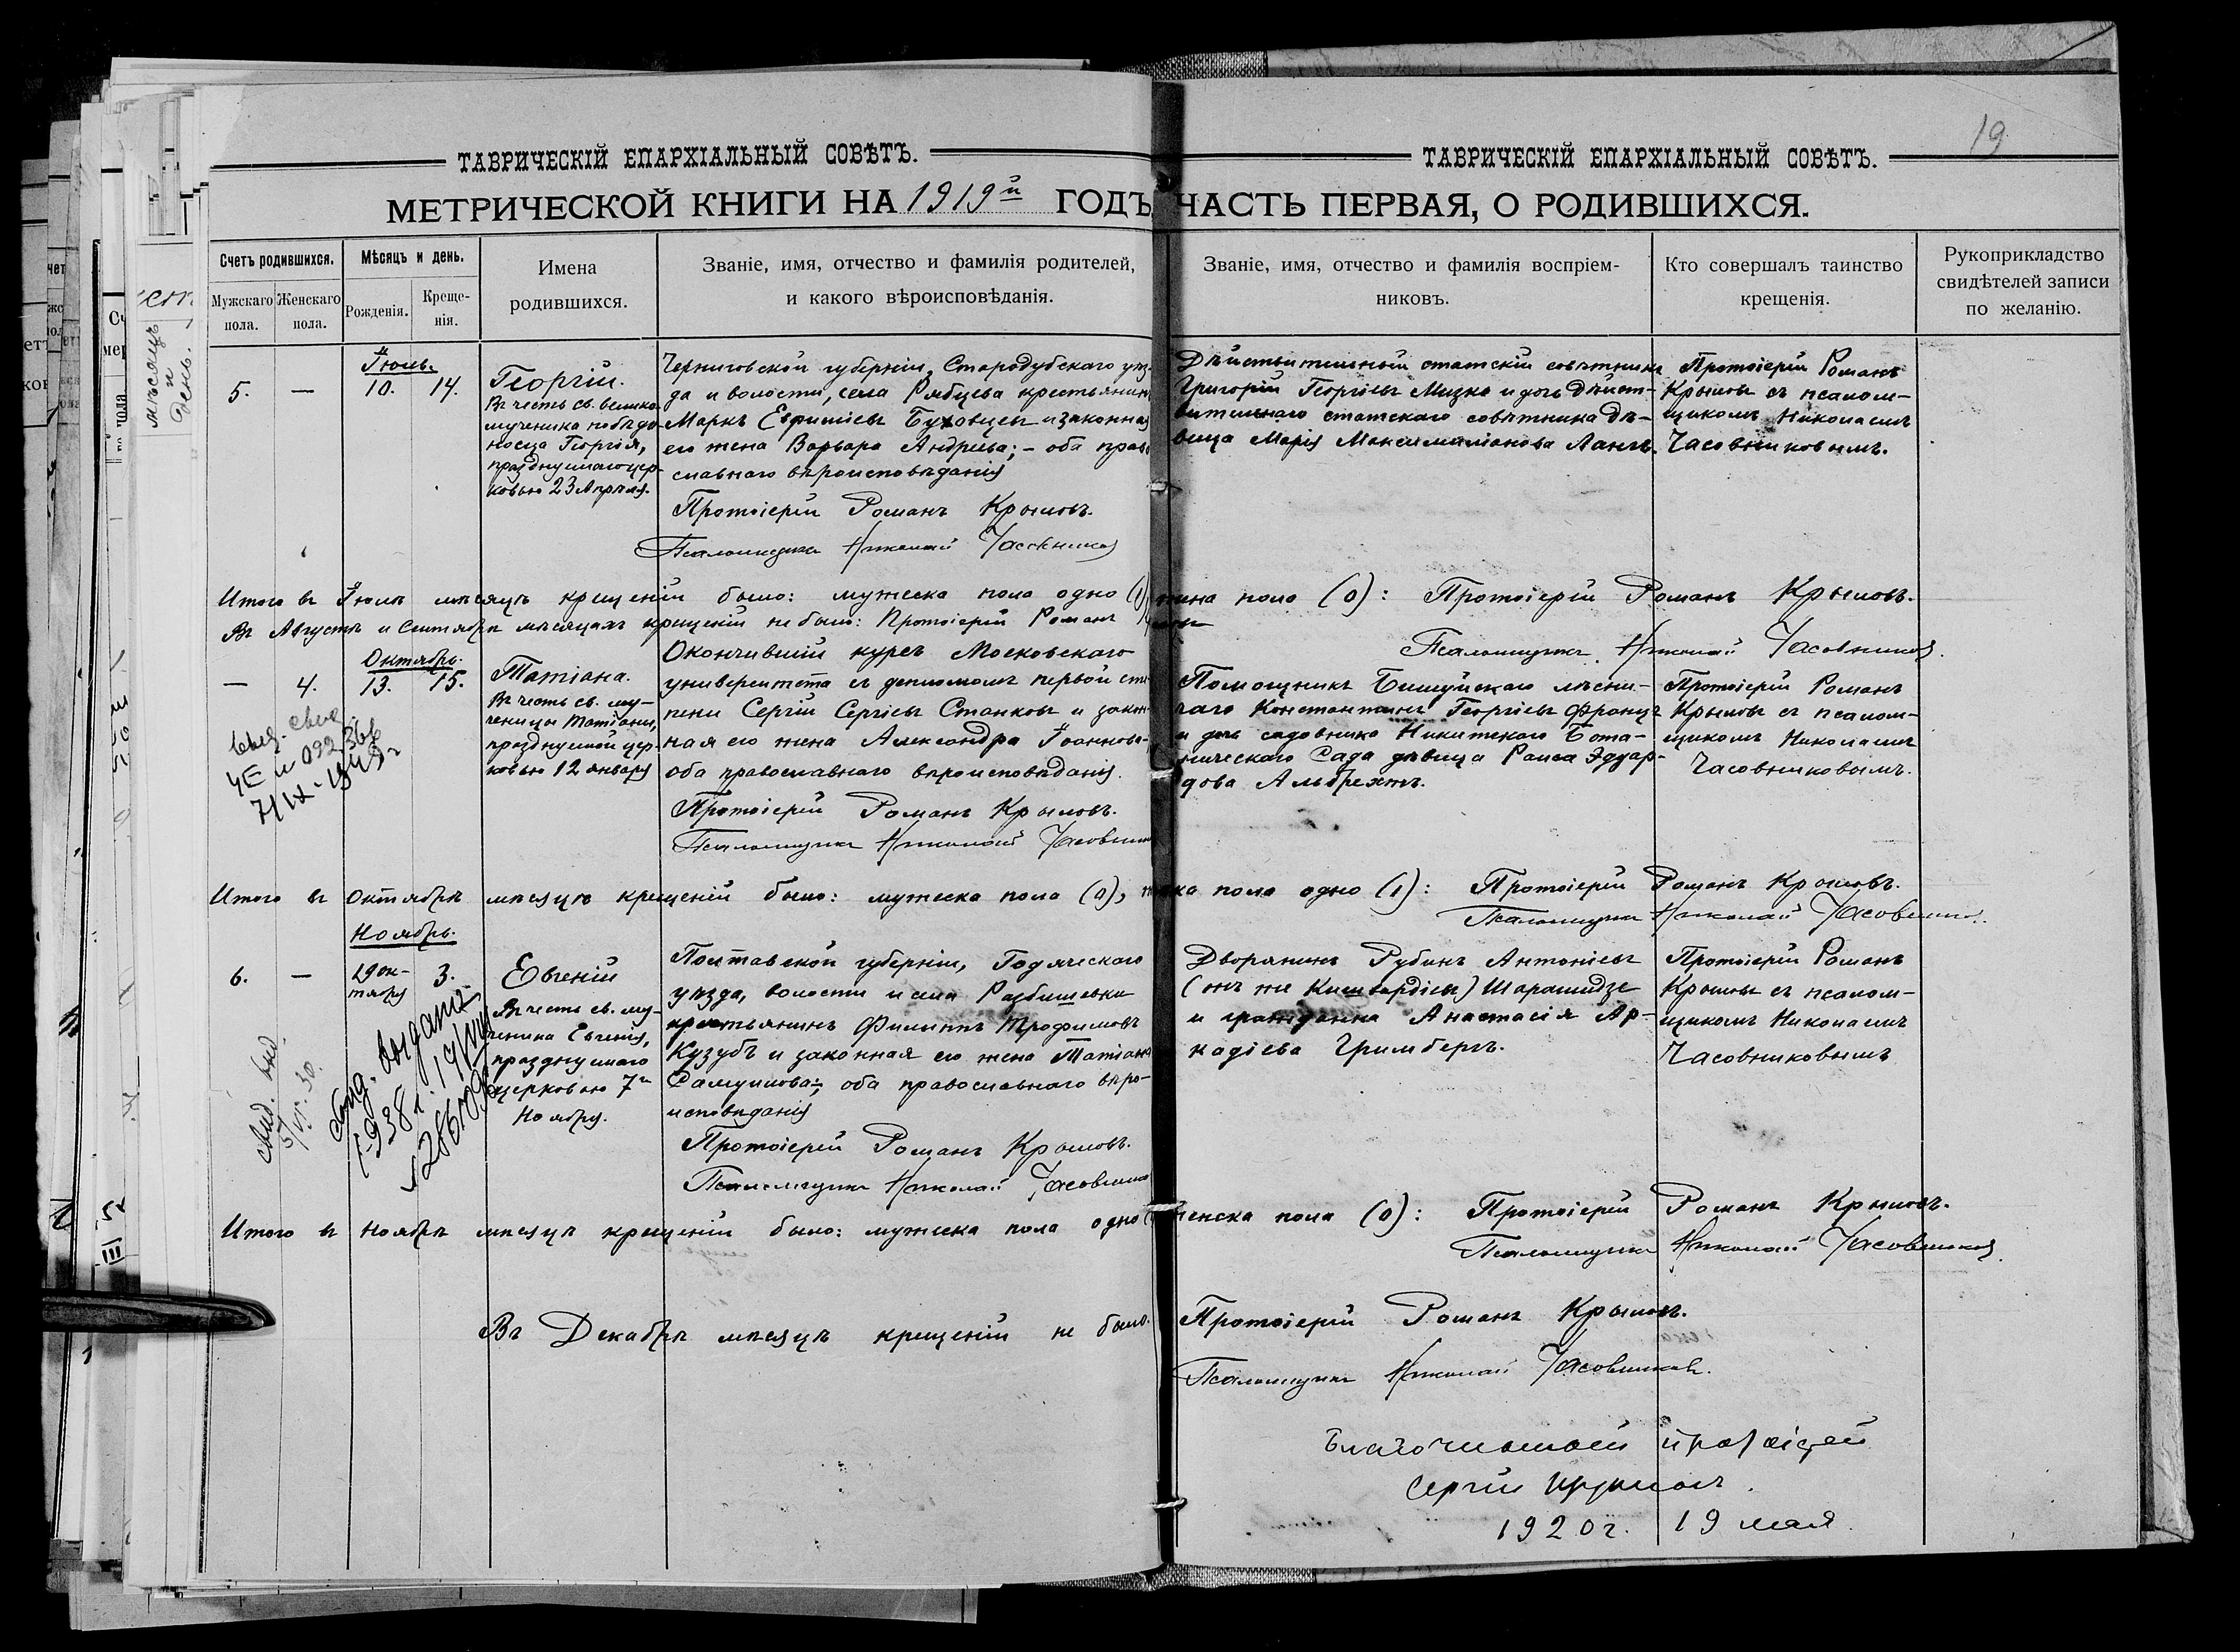 19
ТАВРИЧЕСКІЙ ЕПАРХІАЛЬНЫЙ СОВѢТЪ.
ТАВРИЧЕСКІЙ ЕПАРХІАЛЬНЫЙ СОВѢТЪ.
МЕТРИЧЕСКОЙ КНИГИ НА 1919й ГОДЪ ЧАСТЬ ПЕРВАЯ, О РОДИВШИХСЯ.
Счетъ родившихся.
Мужскаго пола.
Женскаго пола.
Мѣсяцъ и день.
Рожденія.
Креще-
нія.
Имена
родившихся.
Званіе, имя, отчество и фамилія родителей,
и какого вѣроисповѣданія.
Званіе, имя, отчество и фамилія воспріем-
никовъ.
Кто совершалъ таинство
крещенія.
Рукоприкладство
свидѣтелей записи
по желанію.
Іюль.
5. — 10. 14.
Георгій.
Въ честь св. велико-
мученика побѣдо-
носца Георгія,
празднуемаго цер-
ковью 23 Апрѣля.
Черниговской губерніи, Стародубскаго уѣз-
да и волости, села Рябцева крестьянинъ
Маркъ Евфиміевъ Буховцевъ и законная
его жена Варвара Андреева; - оба право-
славнаго вѣроисповѣданія
Протоіерей Романъ Крыловъ.
Псаломщикъ Николай Часовников
Дѣйствительный статскій совѣтникъ
Григорій Георгіевъ Мизко и дочь Дѣйст-
вительнаго статскаго совѣтника Дѣ-
вица Марія Максимиліанова Лангъ.
Протоіерей Романъ
Крыловъ съ псалом-
щикомъ Николаемъ
Часовниковымъ.
Итого въ Іюлѣ мѣсяцѣ крещеній было: мужеска пола одно (1) женска пола (0): Протоіерей Романъ Крыловъ.
Въ Августѣ и Сентябрѣ мѣсяцахъ крещеній не было: Протоіерей Романъ Крыловъ
Псаломщикъ Николай Часовников.
Октябрь.
— 4. 13. 15.
Татіана.
Въ честь св. му-
ченицы Татіаны,
празднуемой цер-
ковью 12 января
Окончившій курсъ Московскаго
университета съ дипломомъ первой сте-
пени Сергій Сергіевъ Станковъ и закон-
ная его жена Александра Іоаннова-
оба православнаго вѣроисповѣданія.
Протоіерей Романъ Крыловъ.
Псаломщикъ Николай Часовник
Помощникъ Бешуйскаго лѣсни-
чаго Константинъ Георгіевъ Францъ
и дочь садовника Никитскаго Бота-
ническаго Сада дѣвица Раиса Эдуар-
дова Альбрехтъ.
Протоіерей Романъ
Крыловъ съ псалом-
щикомъ Николаемъ
Часовниковымъ.
Итого въ Октябрѣ мѣсяцѣ крещеній было: мужеска пола (0), женска пола одно (1): Протоіерей Романъ Крыловъ.
Псаломщикъ Николай Часовников.
Ноябрь.
6. — 29 ок-
тября 3.
Евгеній
Въ честь св. му-
ченика Евгенія,
празднуемаго
церковью 7го
Ноября.
Полтавской губерніи, Гадячскаго
уѣзда, волости и села Разбишевки
крестьянинъ Филиппъ Трофимовъ
Кузубъ и законная его жена Татіана
Самуилова; оба православнаго вѣро-
исповѣданія
Протоіерей Романъ Крыловъ.
Псаломщикъ Николай Часовник
Дворянинъ Рубинъ Антоніевъ
(онъ же Кишвардіевъ) Шарашидзе
и гражданка Анастасія Ар-
кадіева Гримбергъ.
Протоіерей Романъ
Крыловъ съ псалом-
щикомъ Николаемъ
Часовниковымъ
Итого въ Ноябрѣ мѣсяцѣ крещеній было: мужеска пола одно женска пола (0): Протоіерей Романъ Крыловъ.
Псаломщикъ Николай Часовников.
Въ Декабрѣ мѣсяцѣ крещеній не было. Протоіерей Романъ Крыловъ.
Псаломщикъ Николай Часовников.
Благочинный протоіерей
Сергій
1920 г. 19 мая.